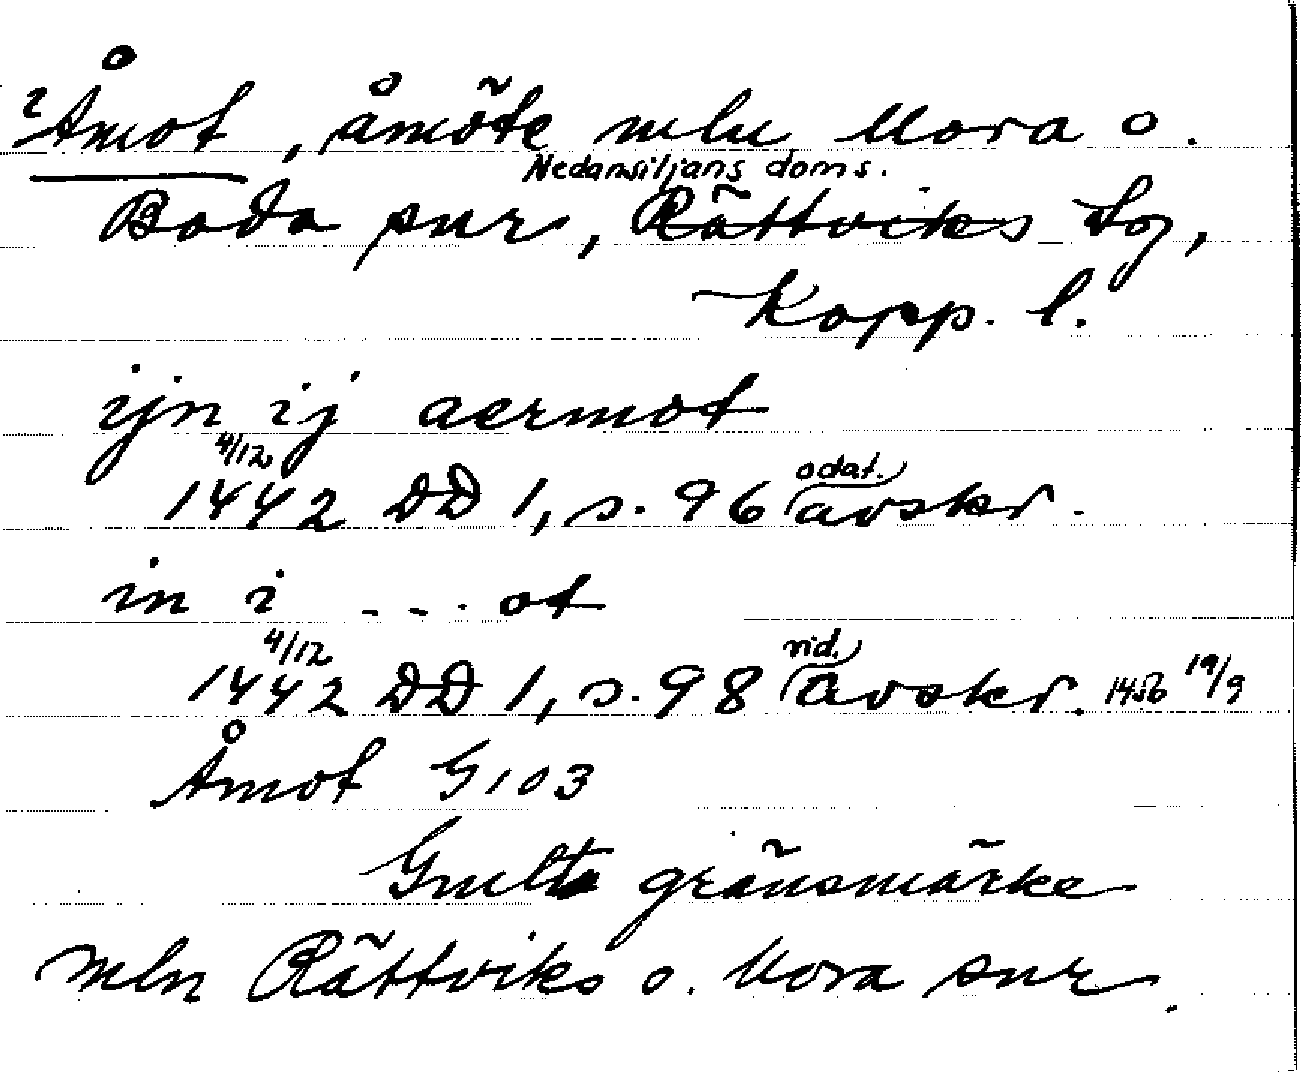 ?Åmot, åmöte mln Mora o.
Nedansiljans doms.
Boda snr, Rättviks Lg,
Kopp. l.
ijn ij aermot
4/12 odat.
1442 DD 1, s. 96 avskr.
in i --- ot
4/12 vid.
1442 DD 1, s. 98 avskr. 1456 19/9
Åmot G103
Gmlt gränsmärke
mln Rättviks o. Mora snr.